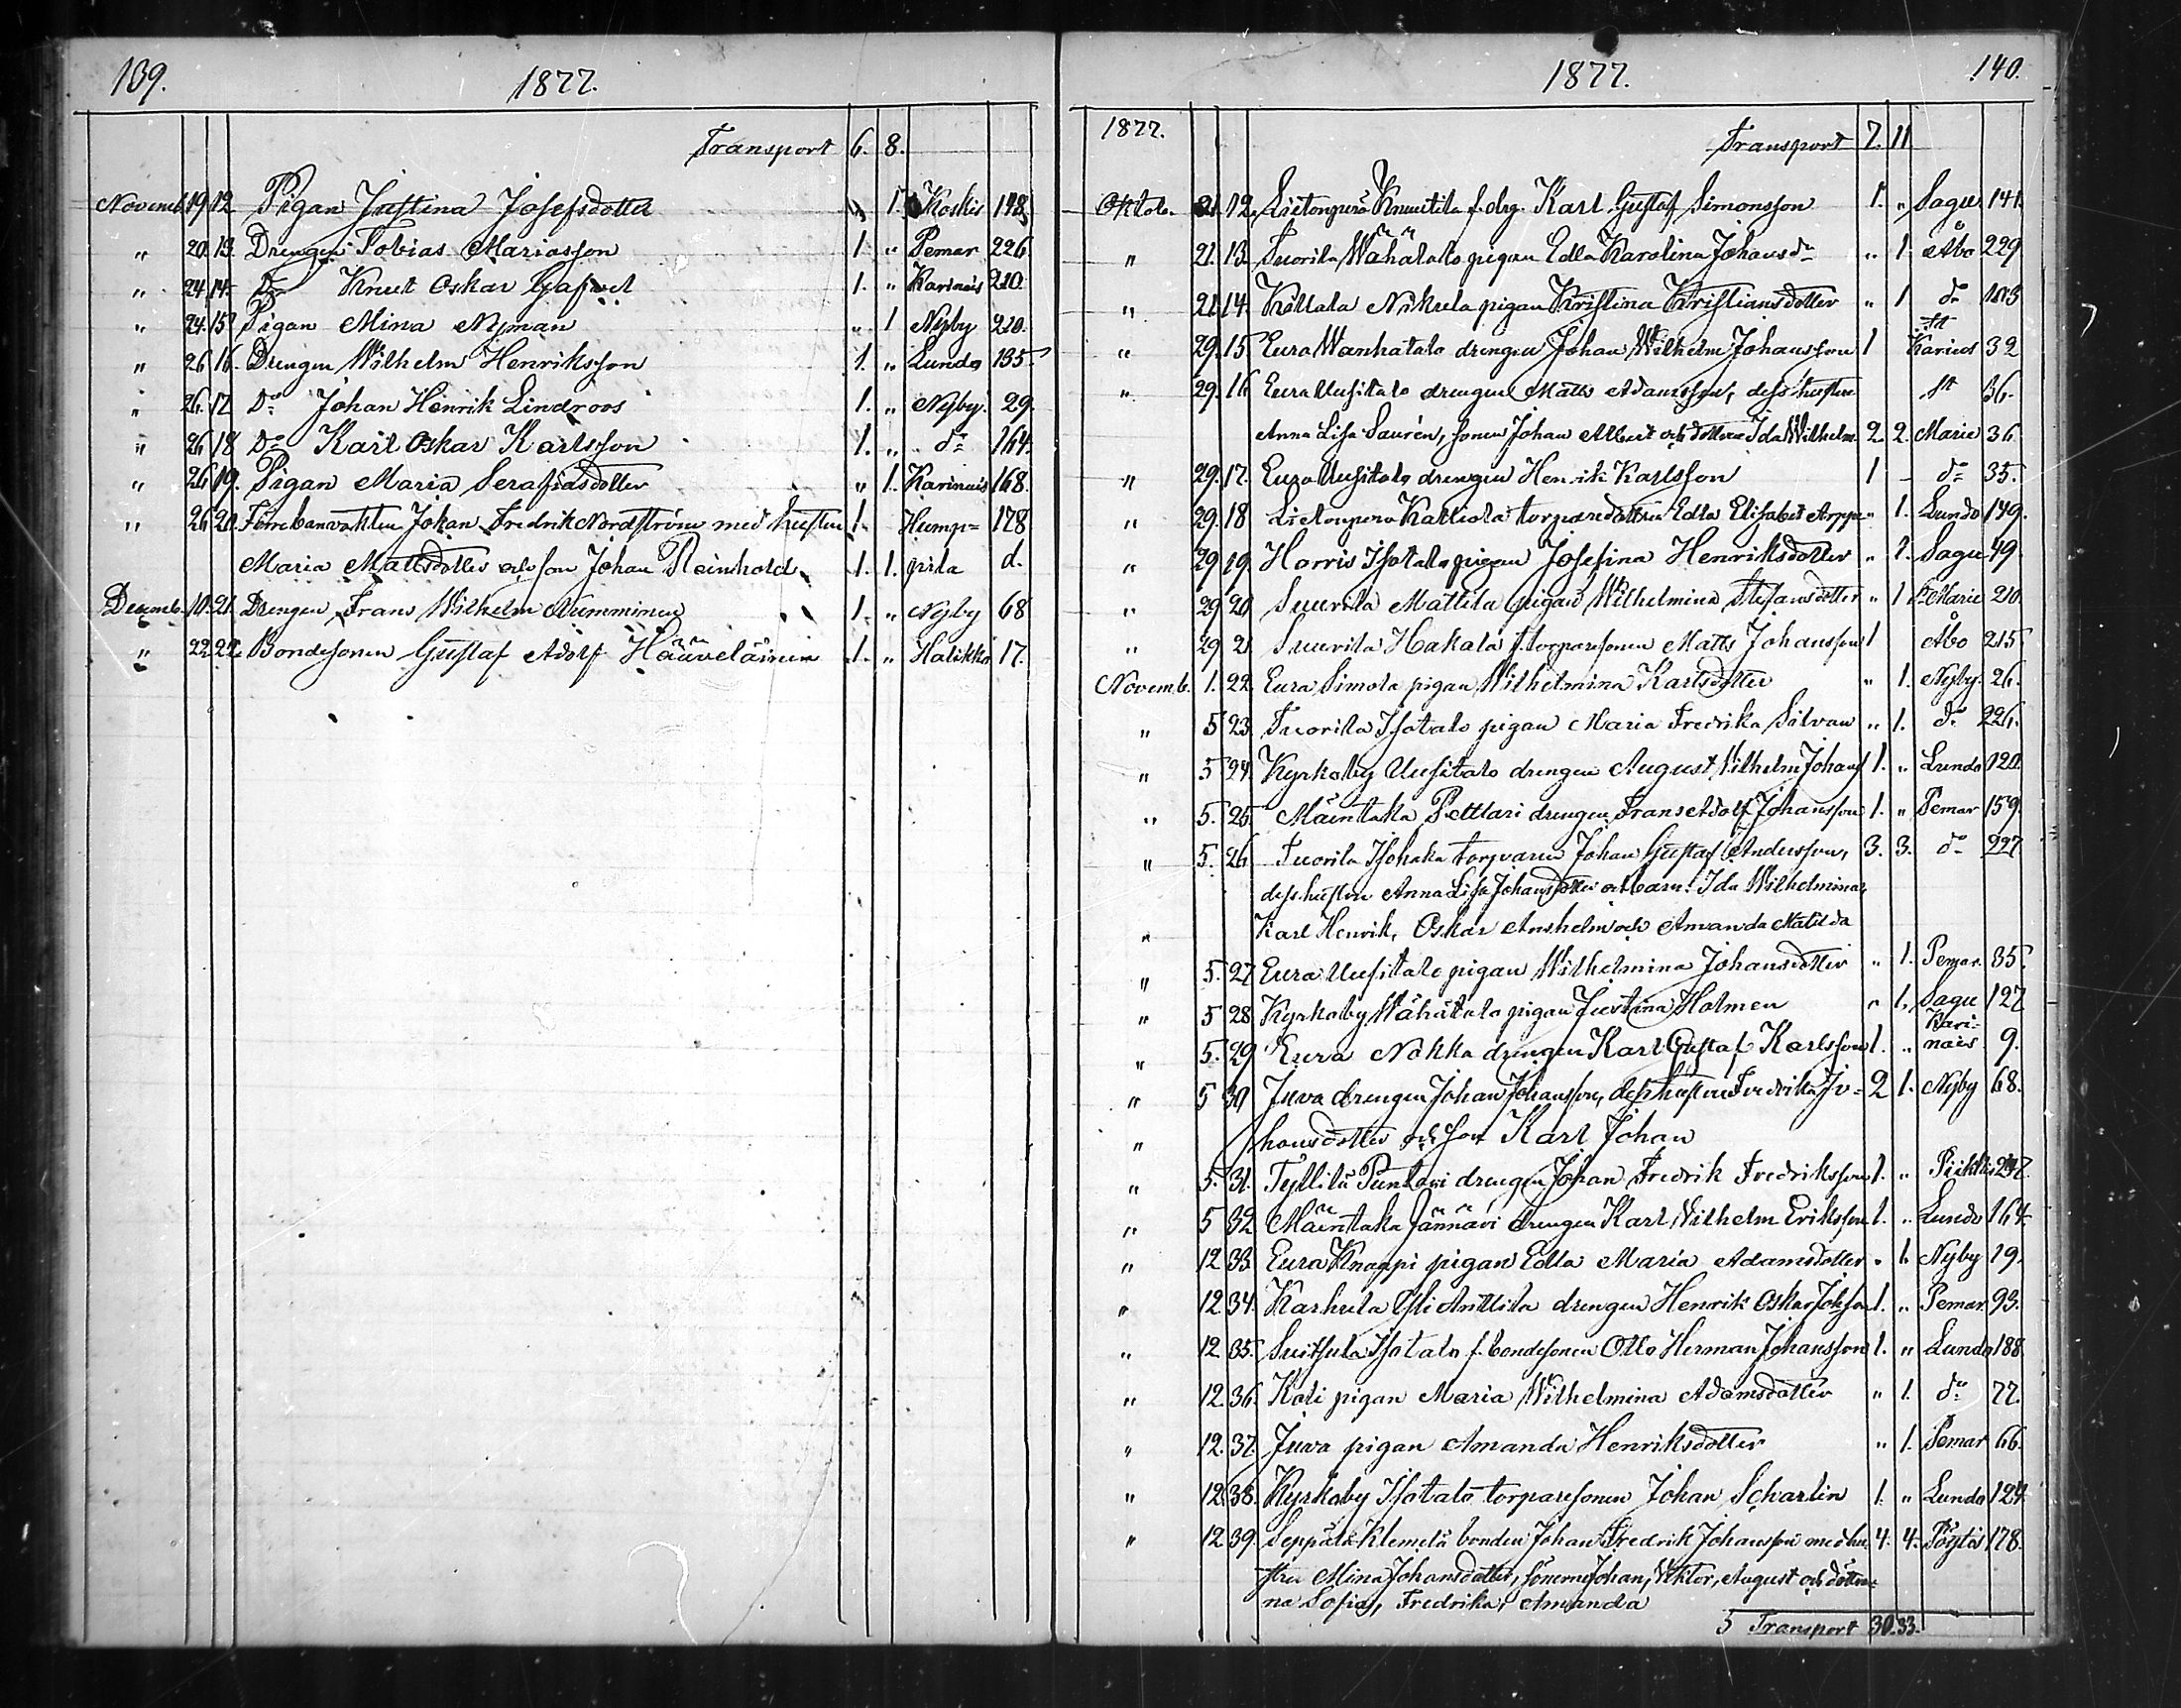 139.
1877.
Transport 6. 8.
Novemb. 19 12 Pigan Justina Josefsdotter " 1. Koskis 148
" 20. 13. Drengen Tobias Mariasson 1 " Pemar 226
" 24 14. Do Knut Oskar 1. " Karinais 210.
" 24. 15 Pigan Mina Nyman " 1 Nyby 220.
" 26 16. Drengen Wilhelm Henriksson 1. " Lundo 135
" 26. 17 Do Johan Henrik Lindroos 1. " Nyby. 29.
" 26 18 Do Karl Oskar Karlsson 1. " do 164.
" 26 19. Pigan Maria Serafiasdotter " 1. Karinais 168.
" 26 20. Förre banvakten Johan Fredrik Nordström med hustru 1. Hump= 178
Maria Mattsdotter och son Johan Reinhold 1. 1. pila d.
Decemb. 10. 21. Drengen Frans Wilhelm Numminen 1. " Nyby 68
" 22 22. Bondesonen Gustaf Adolf 1. " Halikko 17.
1877.
140.
1877. Transport 7. 11
Oktob. 21. 12. Lietonperä Knuutila f. drg. Karl Gustaf Simonsson 1. " Sagu 141.
" 21. 13. Tuorila Wähätalo pigan Edla Karolina Johansdr " 1. Åbo 229
" 21 14. Kottala Nikula pigan Kristina Kristiansdotter " 1 do 103
" 29. 15. Eura Wanhatalo drengen Johan Wilhelm Johansson 1 St Karins 32
" 29. 16 Eura Uusitalo drengen Matts Adamsson, dess hustru St 36.
Anna Lisa Saurén, sonen Johan Albert och dottren Ida Wilhelm. 2. 2. Marie 36.
" 29. 17. Eura Uusitalo drengen Henrik Karlsson 1 - do 35.
" 29. 18 Lietonperä Kalliola torparedottren Edla Elisabet " 1. Lundo 149.
" 29 19. Horris Isotalo pigan Josefina Henriksdotter " 1. Sagu 49.
" 29 20 Suurila Mattila pigan Wilhelmina Stefansdotter " 1 St Marie 210
" 29 21 Suurila Hakala f. torparesonen Matts Johansson 1 Åbo 215
Novemb. 1. 22. Eura Simola pigan Wilhelmina Karlsdotter " 1. Nyby. 26.
" 5 23. Tuorila Isotalo pigan Maria Fredrika Silvan " 1. do 226.
" 5 24. Kyrkoby Uusitalo drengen August Wilhelm Johans 1. " Lundo 120.
" 5. 25. Mäentaka Pettari drengen Frans Adolf Johansson 1. " Pemar 159.
" 5. 26 Tuorila Isohaka torparen Johan Gustaf Andersson, 3. 3. do 227
dess hustru Anna Lisa Johansdotter och barn: Ida Wilhelmina,
" Karl Henrik, Oskar Anshelm och Amanda Matilda
" 5. 27 Eura Uusitalo pigan Wilhelmina Johansdotter " 1. Pemar. 35.
" 5 28. Kyrkoby Wähätalo pigan Justina Holmen " 1. Sagu 127
" 5. 29 Eura Nokka drengen Karl Gustaf Karlsson 1. " Kari=nais 9.
" 5 30 Juva drengen Johan Johansson, dess hustru Fredrika Jo= 2 1. Nyby 68.
" hansdotter och son Karl Johan
" 5. 31. Tyllilä Puntari drengen Johan Fredrik Fredriksson 1. " Piikkis 247.
" 5 32 Mäentaka Jännäri drengen Karl Wilhelm Eriksson 1. " Lundo 164.
" 12 33. Eura Knaapi pigan Edla Maria Adamsdotter " 1. Nyby 19.
" 12. 34. Karhula Yli Anttila drengen Henrik Oskar Johsson 1. " Pemar 93.
" 12 35. Suitsula Isotalo f. bondesonen Otto Herman Johansson 1. " Lundo 188.
" 12. 36. Koli pigan Maria Wilhelmina Adamsdotter " 1. do 77.
" 12. 37. Juva pigan Amanda Henriksdotter " 1. Pemar 66.
" 12 38. Kyrkoby Isotalo torparesonen Johan Scharlin 1. " Lundo 124.
" 12 39. Seppälä Klemelä bonden Johan Fredrik Johansson med hu 4. 4. Pöytis 178.
stru Mina Johansdotter, sönerna Johan, Viktor, August och döttrar=
na Sofia, Fredrika, Amanda
5 Transport 30. 33.